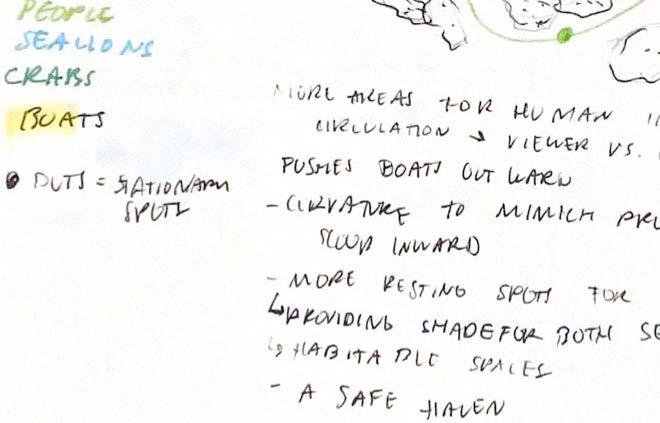 PEOPLE
SEALIONS
CRABS
BOATS
DOTS = STATIONARY
SPOTS
MORE AREAS FOR HUMAN
CIRCULATION → VIEWER VS.
PUSHES BOATS OUTWARD
- CURVATURE TO MIMICH
INWARD
- MORE RESTING SPOTS FOR
↳ PROVIDING SHADE FOR BOTH SE
↳ HABITABLE SPACES
- A SAFE HAVEN